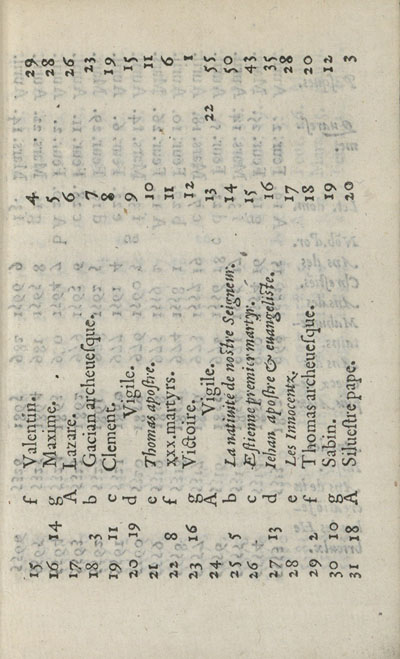 15. f Valentin. 4. 29
16. 14 g Maxime. 5 28
17. A Lazare. 6 26
18. 3 b Gacian archeueſque. 7 23
19. 11 c Clement. 8 19
20 19 d Vigile. 9 15
21. e Thomas apoſtre. 10 11
22 8 f xxx.martyrs. 11 6
23 16 g Victoire. 12 1
24. A Vigile. 13 22 55
25. 5 b La natiuité de noſtre Seigneur. 14 50
26 c Eſtienne premier martyr. 15 43
27. 13 d Iehan apoſtre & euangeliſte. 16 35
28 e Les Innocentz. 17 28
29. 2 f Thomas archeueſque. 18 20
30 10 g Sabin. 19. 12
31 18 A Silueſtre pape. 20 3